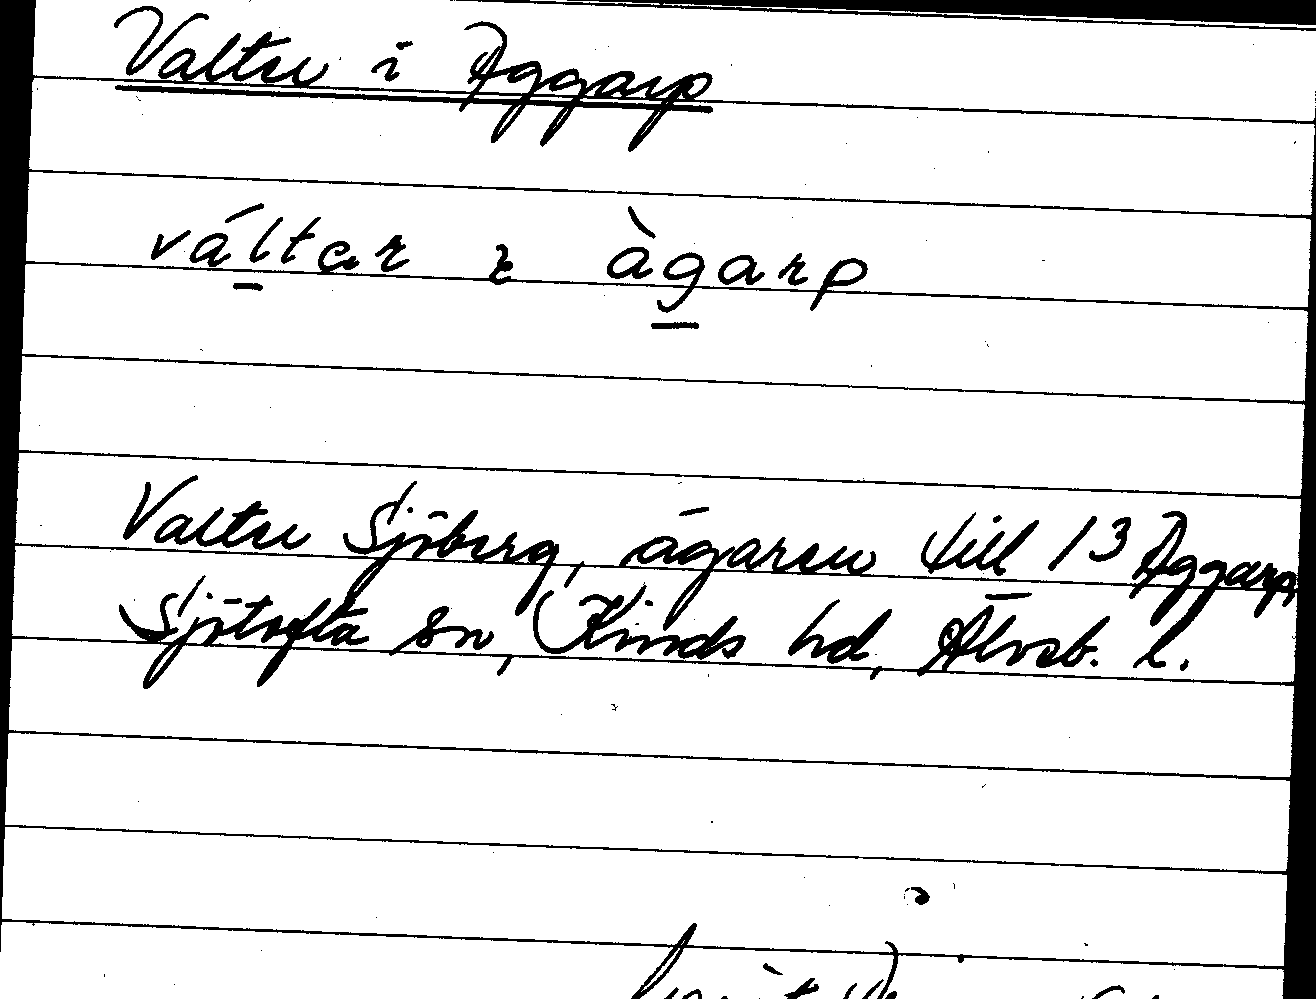 Valter i Aggarp
váltar ɩ àgarp
Valter Sjöberg, ägaren till 13 Aggarp,
Sjötofta sn, Kinds hd, Älvsb. l.